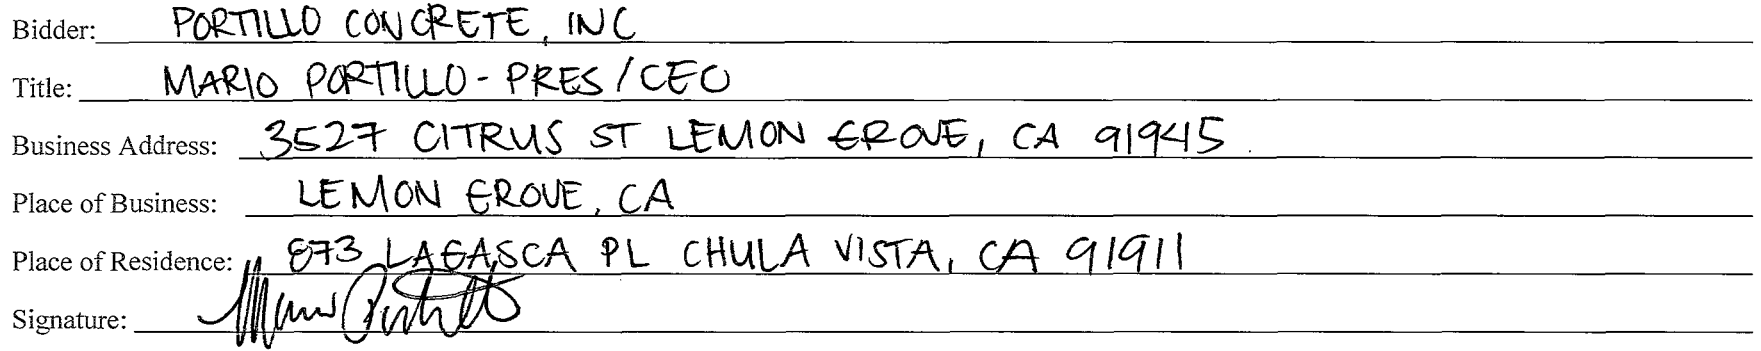 Bidder: PORTILLO CONCRETE, INC
Title: MARIO PORTILLO - PRES / CEO
Business Address: 3527 CITRUS ST LEMON GROVE, CA 91945
Place of Business: LEMON GROVE, CA
Place of Residence: 873 LAGASCA PL CHULA VISTA, CA 91911
Signature: Mario Portillo